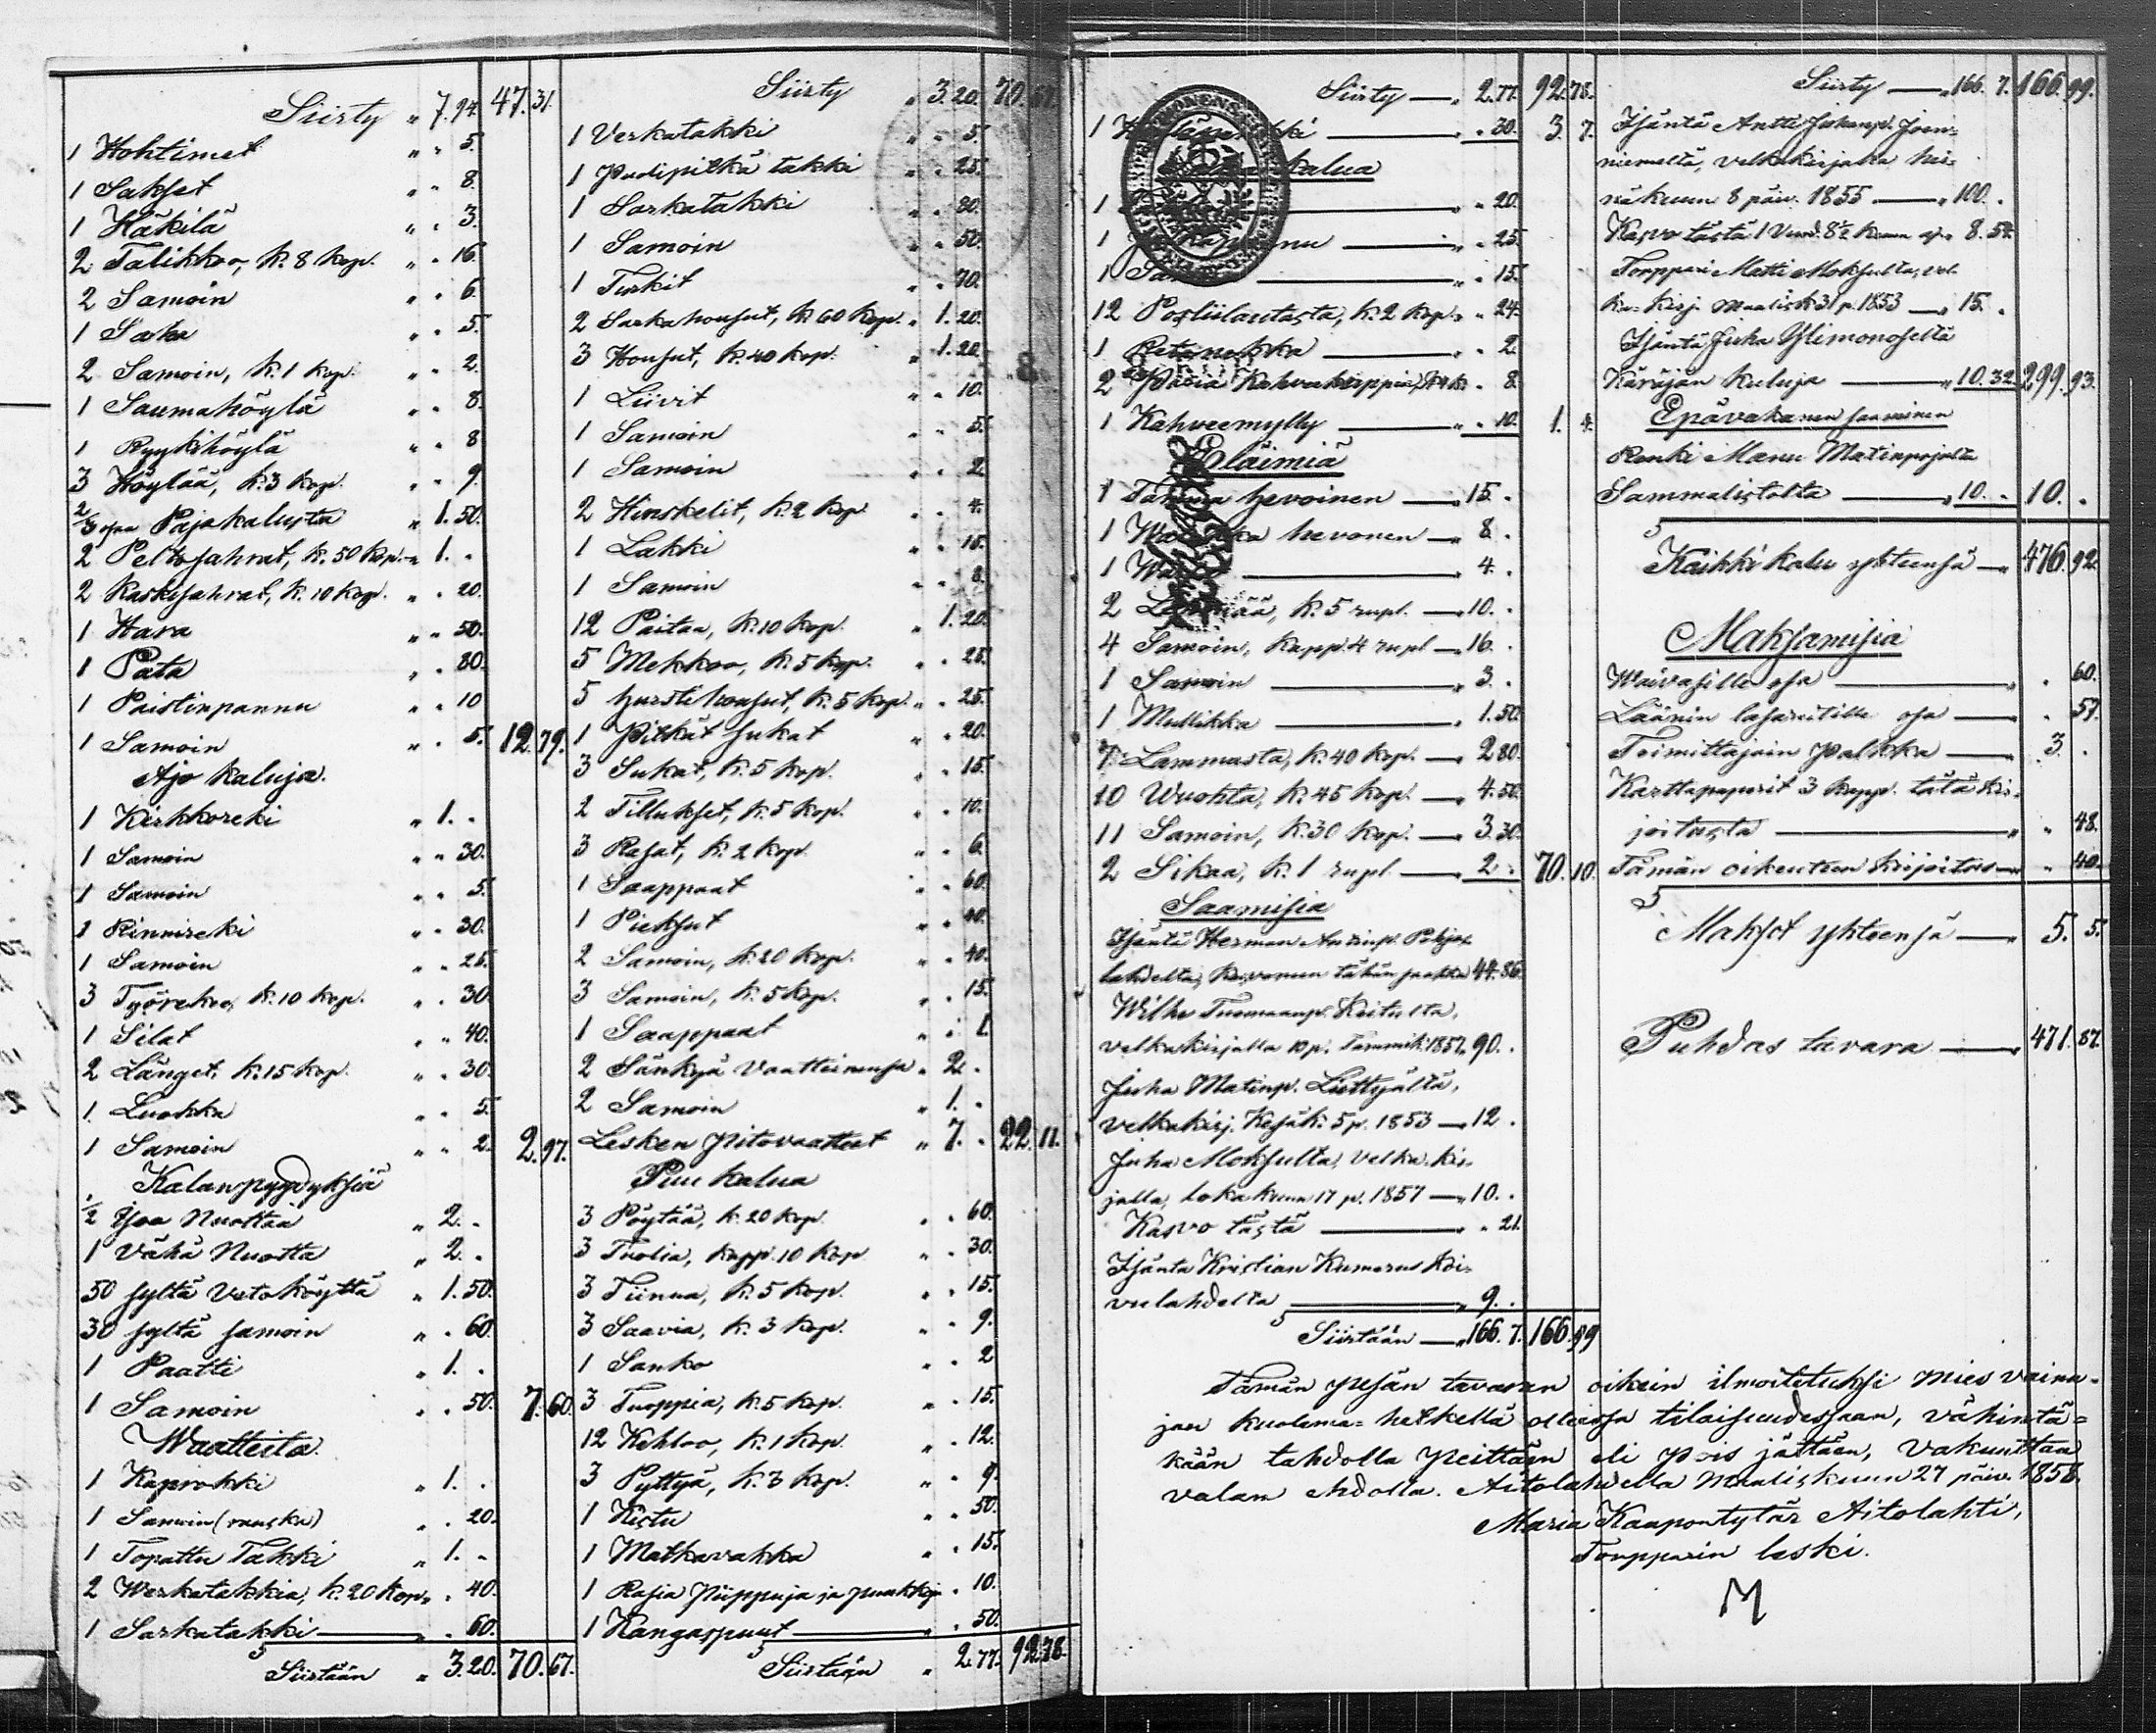 Siirty " 7.94. 47.31.
1 Hohtimet " " 5.
1 Sakset " " 8.
1 Häkilä " " 3.
2 Talikkoo, k. 8 kop. " " 16.
2 Samoin " " 6.
1 Saha " " 5.
2 Samoin, k. 1 kop. " " 2.
1 Saumahöylä " " 8.
1 Ryykihöylä " " 8
3 Höylää, k. 3 kop. " " 9.
2/3 osa Pajakalusta " 1.50.
2 Peltosahrat, k. 50 kop. " 1. "
2 Kaskisahrat, k. 10 kop. " " 20.
1 Hara " " 50.
1 Pata " " 80.
1 Paistinpannu " " 10
1 Samoin " " 5. 12.79.
Ajo kaluja.
1 Kirkkoreki " 1. "
1 Samoin " " 30.
1 Samoin " " 5.
1 Rinnireki " " 30.
1 Samoin " " 25.
3 Työrekee, k. 10 kop. " " 30.
1 Silat " " 40.
2 Länget, k. 15 kop. " " 30.
1 Luokka " " 5.
1 Samoin " " 2. 2.97.
Kalanpyydyksiä
1/2 Isoa Nuottaa " 2. "
1 Vähä Nuotta " 2. "
50 syltä Vetoköyttä " 1.50.
30 syltä samoin " " 60.
1 Paatti " 1. "
1 Samoin " " 50. 7.60.
Waatteita.
1 Kaprokki " 1. "
1 Samoin (ranska) " " 20.
1 Topattu Takki " 1. "
2 Werkatakkia, k. 20 kop. " " 40.
1 Sarkatakki " " 60.
Siirtään " 3.20. 70.67.
Siirty " 3.20. 70.67.
1 Verkatakki " " 5.
1 Puolipitkä takki " " 25.
1 Sarkatakki " " 80.
1 Samoin " " 50.
1 Turkit " " 70.
2 Sarkahousut, k. 60 kop. " 1.20.
3 Housut, k. 40 kop. " 1.20.
1 Liivit " " 10.
1 Samoin " " 5.
1 Samoin " " 2.
2 Hinskelit, k. 2 kop. " " 4.
1 Lakki " " 15.
1 Samoin " " 8.
12 Paitaa, k. 10 kop. " 1.20.
5 Mekkoo, k. 5 kop. " " 25.
5 hurstihousut, k. 5 kop. " " 25.
1 Pitkät sukat " " 20.
3 Sukat, k. 5 kop. " " 15.
2 Tillukset, k. 5 kop. " " 10.
3 Rasat, k. 2 kop. " " 6.
1 Saappaat " " 60.
1 Pieksut " " 40.
2 Samoin, k. 20 kop. " " 40.
3 Samoin, k. 5 kop. " " 15.
1 Saappaat " " 1.
2 Sänkyä vaatteinensa " 2. "
2 Samoin " 1. "
Lesken pitovaatteet " 7. " 22.11.
Puu kalua
3 Pöytää, k. 20 kop. " " 60.
3 Tuolia, kapp. 10 kop " " 30.
3 Tiinua, k. 5 kop. " " 15.
3 Saavia, k. 3 kop. " " 9.
1 Sanko " " 2
3 Tuoppia, k. 5 kop. " " 15.
12 Kehloo, k. 1 kop. " " 12.
3 Pyttyä, k. 3 kop. " " 9.
1 Kistu " " 50.
1 Matkavakka " " 15.
1 Rasia piippuja ja " 10.
1 Kangaspuut " " 50.
Siirtään " 2.77. 92.78.
Siirty — " 2.77. 92.78.
1 — " " 30. 3.7.
kalua
1 — " " 20.
1 — " " 25.
1 — " " 15.
12 Posliilautasta, k. 2 kop. " " 24.
1 — " " 2.
2 Paria Kahvekuppia, k. 4 k. " 8.
1 Kahveemylly — " " 10. 1.4.
Eläimiä
1 Tamma hevoinen — " 15. "
1 hevonen — " 8. "
1 — " 4. "
2 Lehmää, k. 5 rupl. — 10. "
4 Samoin, kapp. 4 rupl — 16. "
1 Samoin — " 3. "
1 Mullikka — " 1.50.
7 Lammasta, k. 40 kop. — 2.80.
10 Wuohta, k. 45 kop. — 4.50.
11 Samoin, k. 30 kop. — 3.30.
2 Sikaa, k. 1 rupl. — 2. " 70.10.
Saamisia
Isäntä Herman Antinp. Pohjos-
lahdelta, kasvonsa tähän 44.86.
Wilhe Tuomaanp. Koitulta,
velkakirjalla 10 p. Tammik. 1857 " 90. "
Juha Matinp. Liettyältä,
velkakirj. Kesäk. 5 p. 1853 — 12. "
Juha Moksulta, velka-kir-
jalla, loka kuun 17 p. 1857 — " 10. "
Kasvo tästä — " " 21.
Isäntä Kristian Kumerus Koi-
vulahdelta — " 9. "
Siirtään — " 166.7. 166.99
Siirty — " 166.7. 166.99.
Isäntä Antti Juhanp. Joen-
niemeltä, velkakirjalla hei-
näkuun 8 päiv. 1855 — " 100. "
Kasvo tästä 1 Vuod. 8½ kuun aj. " 8.54.
Torppari Matti Moksulta, vel-
ka-kirj. Maalisk 31 p. 1853 — " 15. "
Isäntä Juha Ylimonoselta
Käräjän kuluja — " 10.32 299.93.
Epävakanen saaminen
Renki Manu Matinpojalta
Sammalistolta — " 10. " 10. "
Kaikki kalu yhteensä — " 476.92.
Maksamisia
Waivasille osa — " " 60.
Läänin lasareitille osa — " " 57.
Toimittajain palkka — " 3. "
Karttapaperit 3 kapp. tätä kir-
joitusta — " " 48.
Tämän oikeuteen kirjoitus — " " 40.
Maksot yhteensä — " 5.5.
Puhdas tavara — " 471.87.
Tämän pesän tavaran oikein ilmoitetuksi mies vaina-
jan kuolema-hetkellä olleissa tilaisuudessaan, vähintä-
kään tahdolla peittäin eli pois jättäin, vakuuttaa
valan ehdolla. Aitolahdella Maaliskuun 27 päiv. 1858.
Maria Kaapontytär Aitolahti,
Torpparin leski.
M